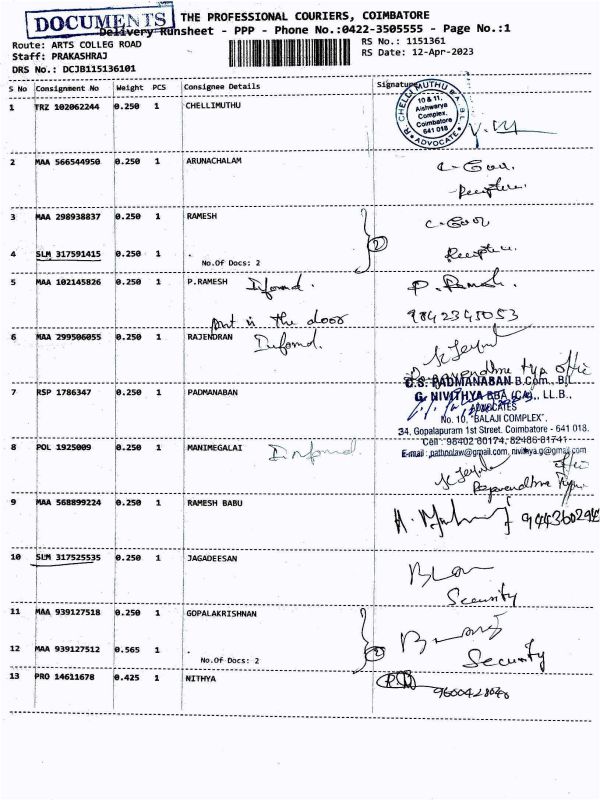 DOCUMENTS
THE PROFESSIONAL COURIERS, COIMBATORE
Delivery Runsheet - PPP - Phone No.:0422-3505555 - Page No.:1
Route: ARTS COLLEG ROAD
RS No.: 1151361
Staff: PRAKASHRAJ
RS Date: 12-Apr-2023
DRS No.: DCJB115136101
S No Consignment No Weight PCS Consignee Details Signature
1 TRZ 102062244 0.250 1 CHELLIMUTHU
R. CHELLIMUTHU B.A. B.L.
10 & 11, Aishwarya Complex, Coimbatore 641 018.
ADVOCATE
2 MAA 566544950 0.250 1 ARUNACHALAM
3 MAA 298938837 0.250 1 RAMESH
2
4 SLM 317591415 0.250 1 .
No.Of Docs: 2
5 MAA 102145826 0.250 1 P.RAMESH Infomd. P. Ramesh.
put in the door 9842345053
6 MAA 299506055 0.250 1 RAJENDRAN Infomd.
G.S. PADMANABAN B.Com., B.L
G. NIVITHYA BBA (CA)., LL.B.,
7 RSP 1786347 0.250 1 PADMANABAN
ADVOCATES
No. 10, "BALAJI COMPLEX",
34, Gopalapuram 1st Street, Coimbatore - 641 018.
Cell : 98402 80174, 82486 81741
8 POL 1925009 0.250 1 MANIMEGALAI Infomd
E-mail : pathnolaw@gmail.com, nivithya.g@gmail.com
9 MAA 568899224 0.250 1 RAMESH BABU
10 SLM 317525535 0.250 1 JAGADEESAN
Security
11 MAA 939127518 0.250 1 GOPALAKRISHNAN
2
12 MAA 939127512 0.565 1 .
Security
No.Of Docs: 2
13 PRO 14611678 0.425 1 NITHYA